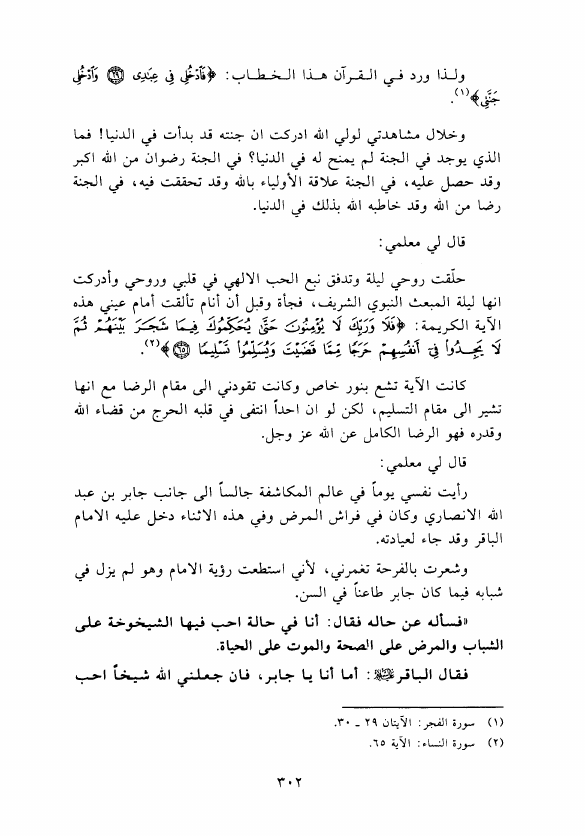 ولـذا ورد فـي الـقـرآن هـذا الـخـطـاب: ﴿فَٱدْخُلِى فِى عِبَٰدِى ۝٢٩ وَٱدْخُلِى
جَنَّتِى﴾(١).
وخلال مشاهدتي لولي الله ادركت ان جنته قد بدأت في الدنيا! فما
الذي يوجد في الجنة لم يمنح له في الدنيا؟ في الجنة رضوان من الله اكبر
وقد حصل عليه، في الجنة علاقة الأولياء بالله وقد تحققت فيه، في الجنة
رضا من الله وقد خاطبه الله بذلك في الدنيا.
قال لي معلمي:
حلّقت روحي ليلة وتدفق نبع الحب الالهي في قلبي وروحي وأدركت
انها ليلة المبعث النبوي الشريف، فجأة وقبل أن أنام تألقت أمام عيني هذه
الآية الكريمة: ﴿فَلَا وَرَبِّكَ لَا يُؤْمِنُونَ حَتَّىٰ يُحَكِّمُوكَ فِيمَا شَجَرَ بَيْنَهُمْ ثُمَّ
لَا يَجِدُوا۟ فِىٓ أَنفُسِهِمْ حَرَجًا مِّمَّا قَضَيْتَ وَيُسَلِّمُوا۟ تَسْلِيمًا ۝٦٥﴾(٢).
كانت الآية تشع بنور خاص وكانت تقودني الى مقام الرضا مع انها
تشير الى مقام التسليم، لكن لو ان احداً انتفى في قلبه الحرج من قضاء الله
وقدره فهو الرضا الكامل عن الله عز وجل.
قال لي معلمي:
رأيت نفسي يوماً في عالم المكاشفة جالساً الى جانب جابر بن عبد
الله الانصاري وكان في فراش المرض وفي هذه الاثناء دخل عليه الامام
الباقر وقد جاء لعيادته.
وشعرت بالفرحة تغمرني، لأني استطعت رؤية الامام وهو لم يزل في
شبابه فيما كان جابر طاعناً في السن.
«فسأله عن حاله فقال: أنا في حالة احب فيها الشيخوخة على
الشباب والمرض على الصحة والموت على الحياة.
فقال الباقر عليه السلام: أما أنا يا جابر، فان جعلني الله شيخاً احب
(١) سورة الفجر: الآيتان ٢٩ ـ ٣٠.
(٢) سورة النساء: الآية ٦٥.
٣٠٢